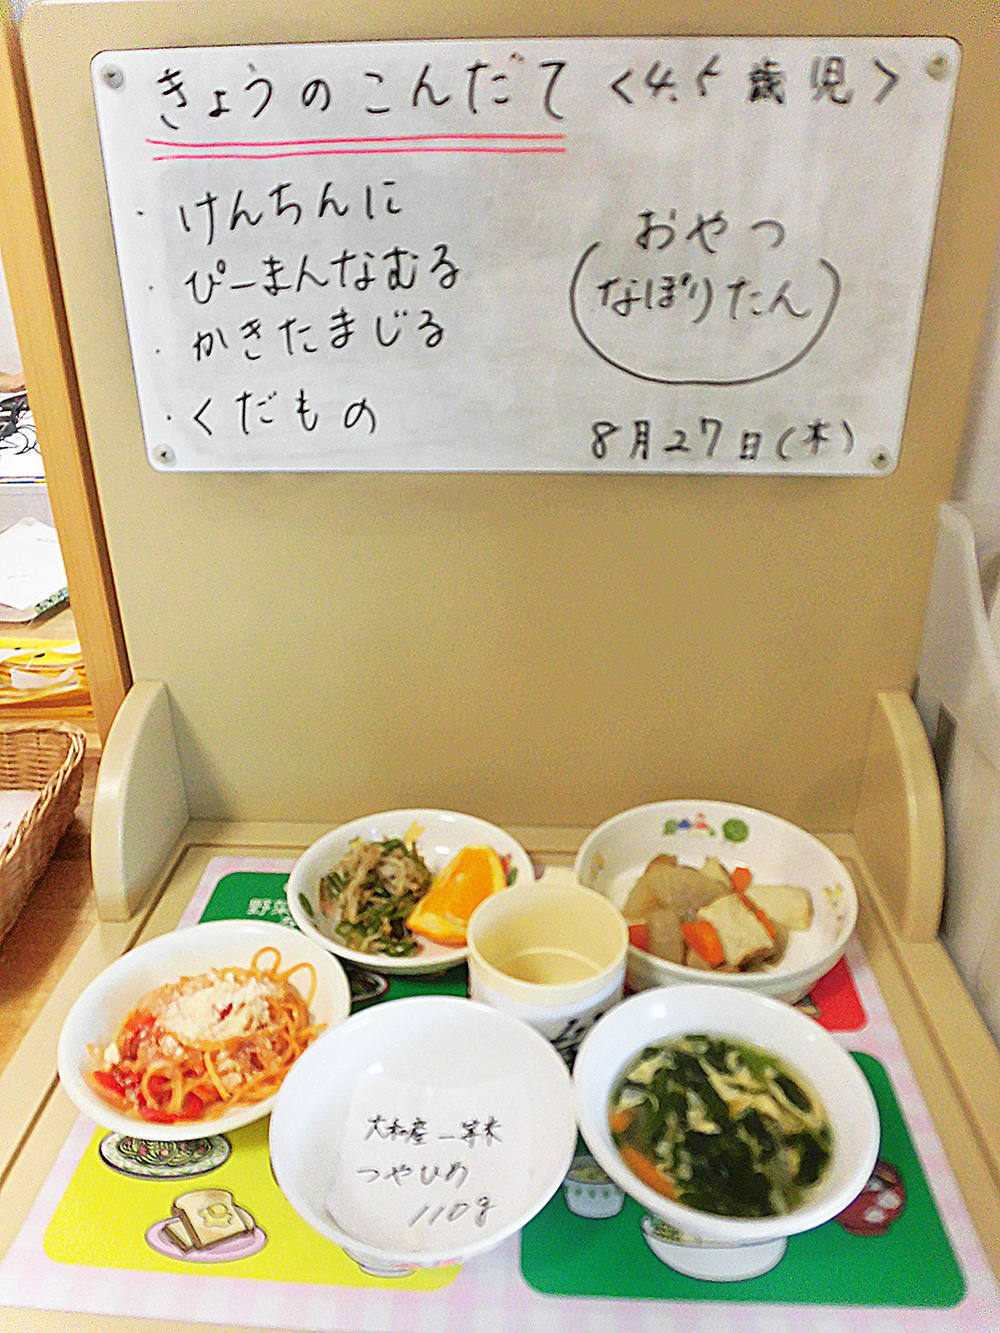 きょうのこんだて <4.5歳児>
・けんちんに
・ぴーまんなむる
・かきたまじる
・くだもの
おやつ
なぽりたん
8月27日(木)
野菜
大和産一等米
つやひめ
110g